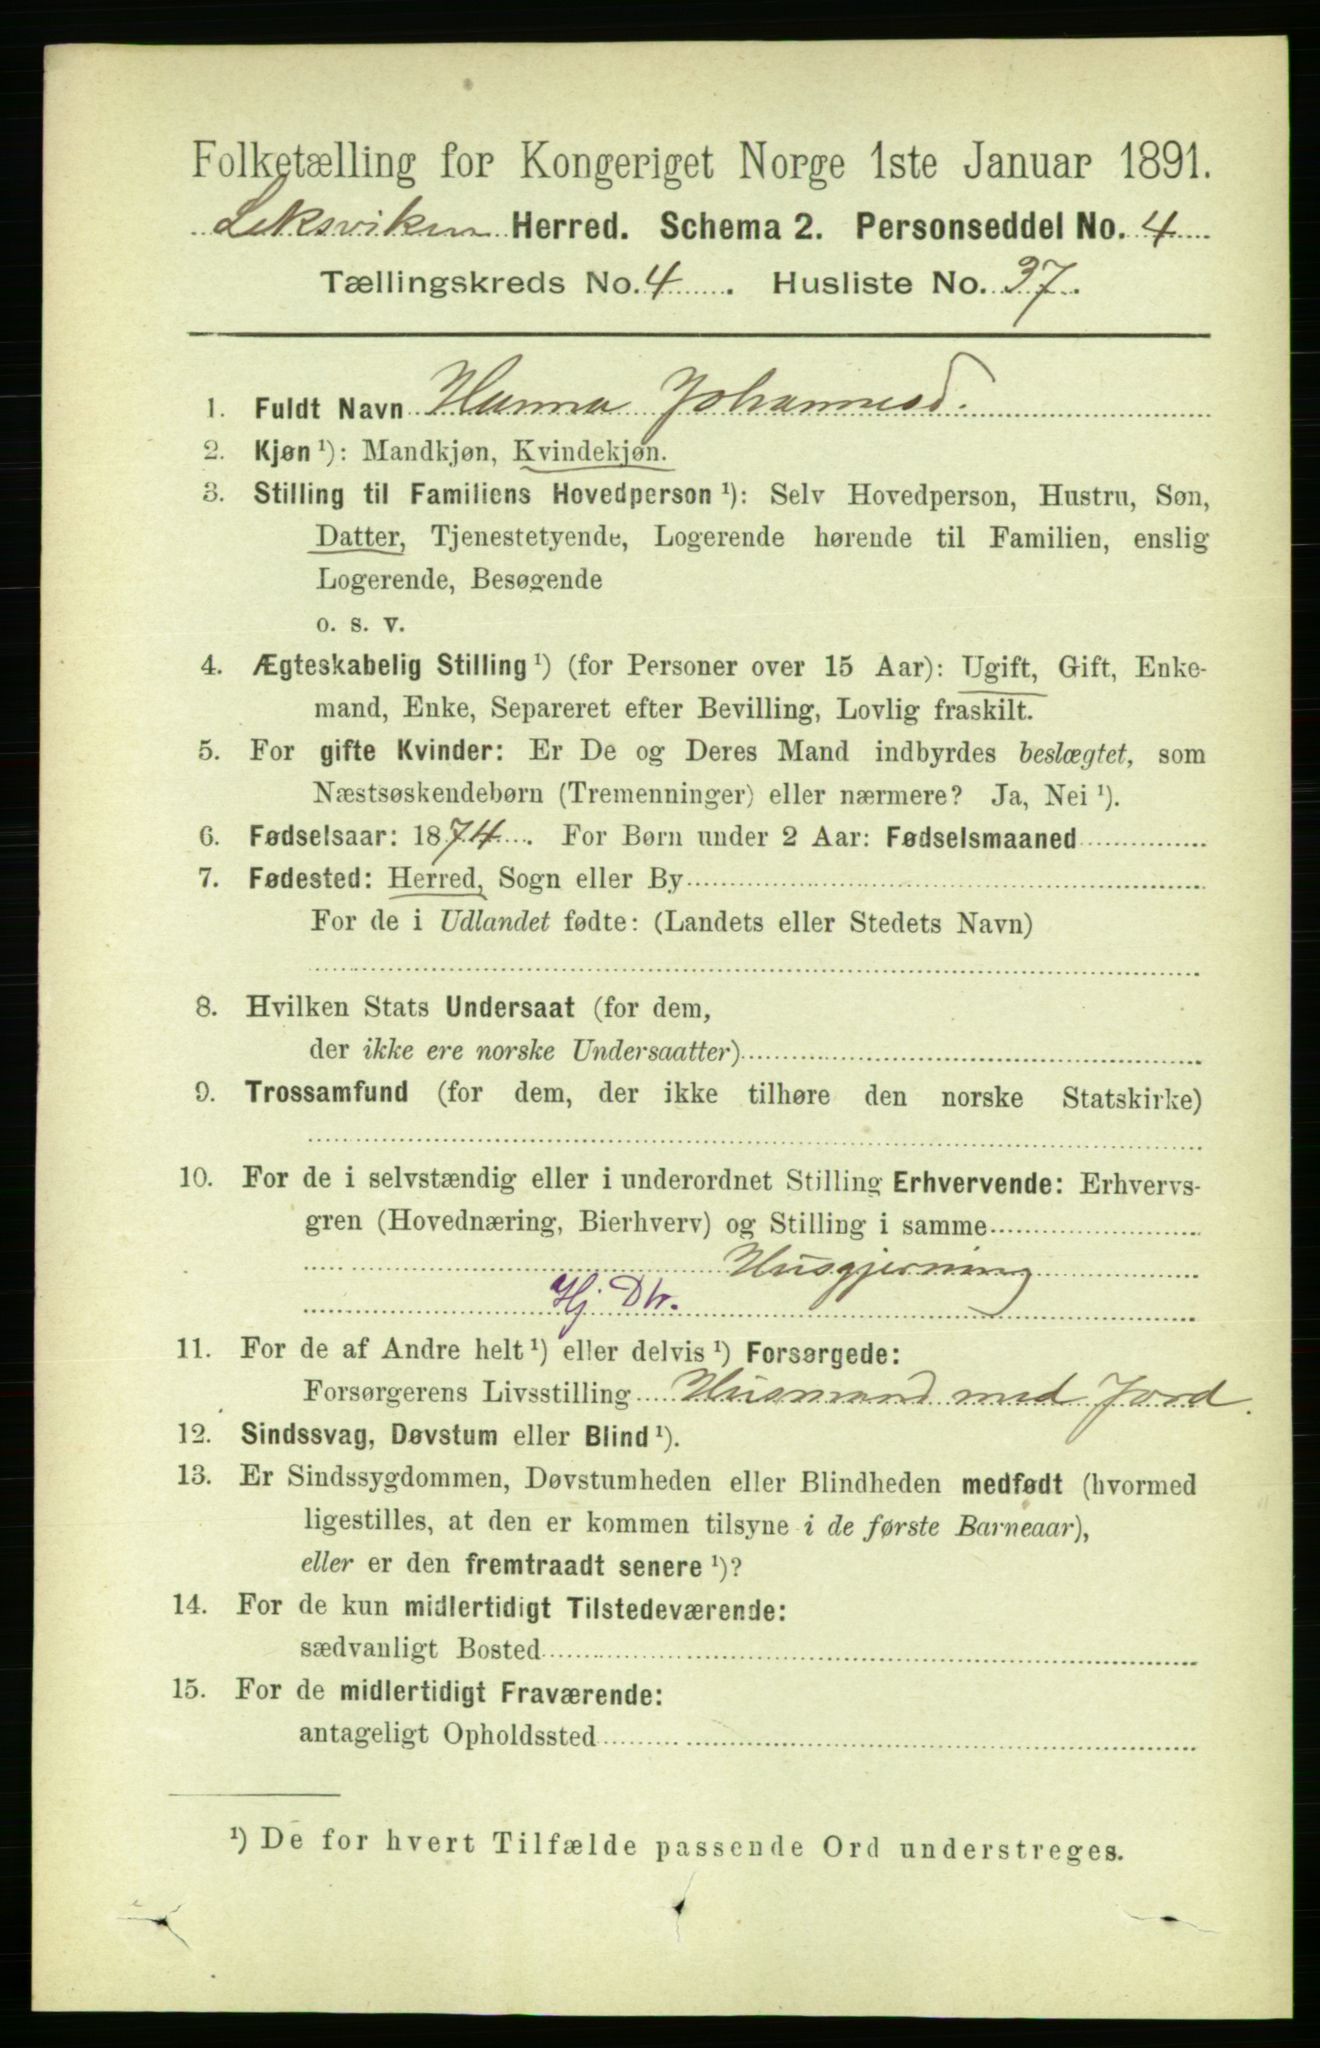 Folketælling for Kongeriget Norge 1ste Januar 1891.
Leksviken Herred. Schema 2. Personseddel No. 4
Tællingskreds No. 4. Husliste No. 37.
1. Fuldt Navn Hanna Johannesd.
2. Kjøn ¹): Mandkjøn, Kvindekjøn.
3. Stilling til Familiens Hovedperson ¹): Selv Hovedperson, Hustru, Søn,
Datter, Tjenestetyende, Logerende hørende til Familien, enslig
Logerende, Besøgende
o. s. v.
4. Ægteskabelig Stilling ¹) (for Personer over 15 Aar): Ugift, Gift, Enke-
mand, Enke, Separeret efter Bevilling, Lovlig fraskilt.
5. For gifte Kvinder: Er De og Deres Mand indbyrdes beslægtet, som
Næstsøskendebørn (Tremenninger) eller nærmere? Ja, Nei ¹).
6. Fødselsaar: 1874. For Børn under 2 Aar: Fødselsmaaned
7. Fødested: Herred, Sogn eller By
For de i Udlandet fødte: (Landets eller Stedets Navn)
8. Hvilken Stats Undersaat (for dem,
der ikke ere norske Undersaatter)
9. Trossamfund (for dem, der ikke tilhøre den norske Statskirke)
10. For de i selvstændig eller i underordnet Stilling Erhvervende: Erhvervs-
gren (Hovednæring, Bierhverv) og Stilling i samme
Husgjerning
Hj. Dtr.
11. For de af Andre helt ¹) eller delvis ¹) Forsørgede:
Forsørgerens Livsstilling Husmand med Jord.
12. Sindssvag, Døvstum eller Blind ¹).
13. Er Sindssygdommen, Døvstumheden eller Blindheden medfødt (hvormed
ligestilles, at den er kommen tilsyne i de første Barneaar),
eller er den fremtraadt senere ¹)?
14. For de kun midlertidigt Tilstedeværende:
sædvanligt Bosted
15. For de midlertidigt Fraværende:
antageligt Opholdssted
¹) De for hvert Tilfælde passende Ord understreges.